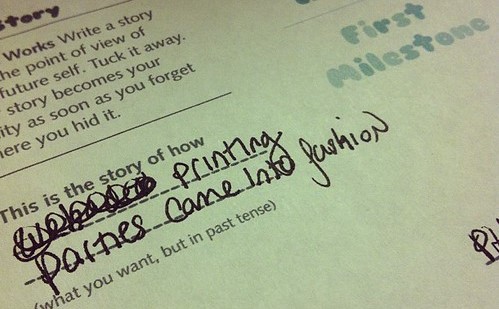 story
Works Write a story
he point of view of
future self. Tuck it away.
story becomes your
ity as soon as you forget
here you hid it.
First
Milestone
This is the story of how
printing
parties came into fashion
(what you want, but in past tense)